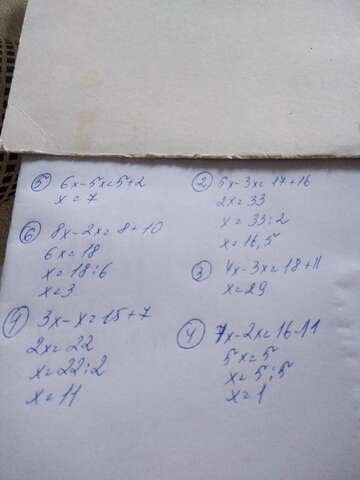 ⑤ 6x-5x=5+2
x=7
⑥ 8x-2x=8+10
6x=18
x=18:6
x=3
① 3x-x=15+7
2x=22
x=22:2
x=11
② 5x-3x=17+16
2x=33
x=33:2
x=16,5
③ 4x-3x=18+11
x=29
④ 7x-2x=16-11
5x=5
x=5:5
x=1